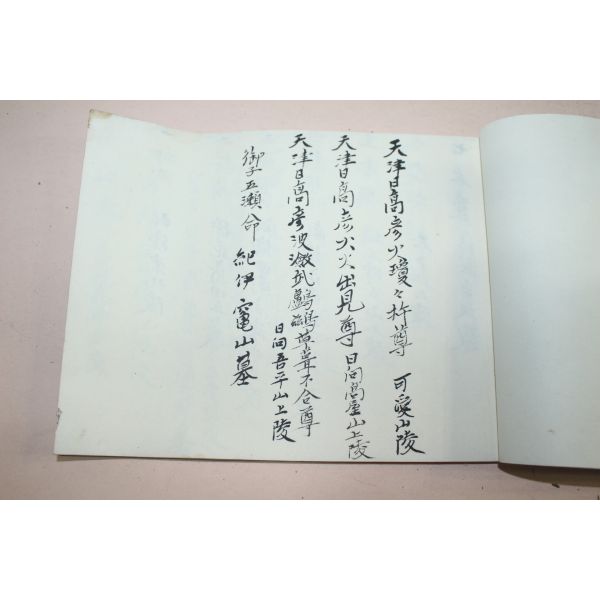 天津日高彦火瓊々杵尊 可愛山陵
天津日高彦火火出見尊 日向高屋山上陵
天津日高彦波瀲武鸕鷀草葺不合尊
日向吾平山上陵
御子五瀬命 紀伊竈山墓